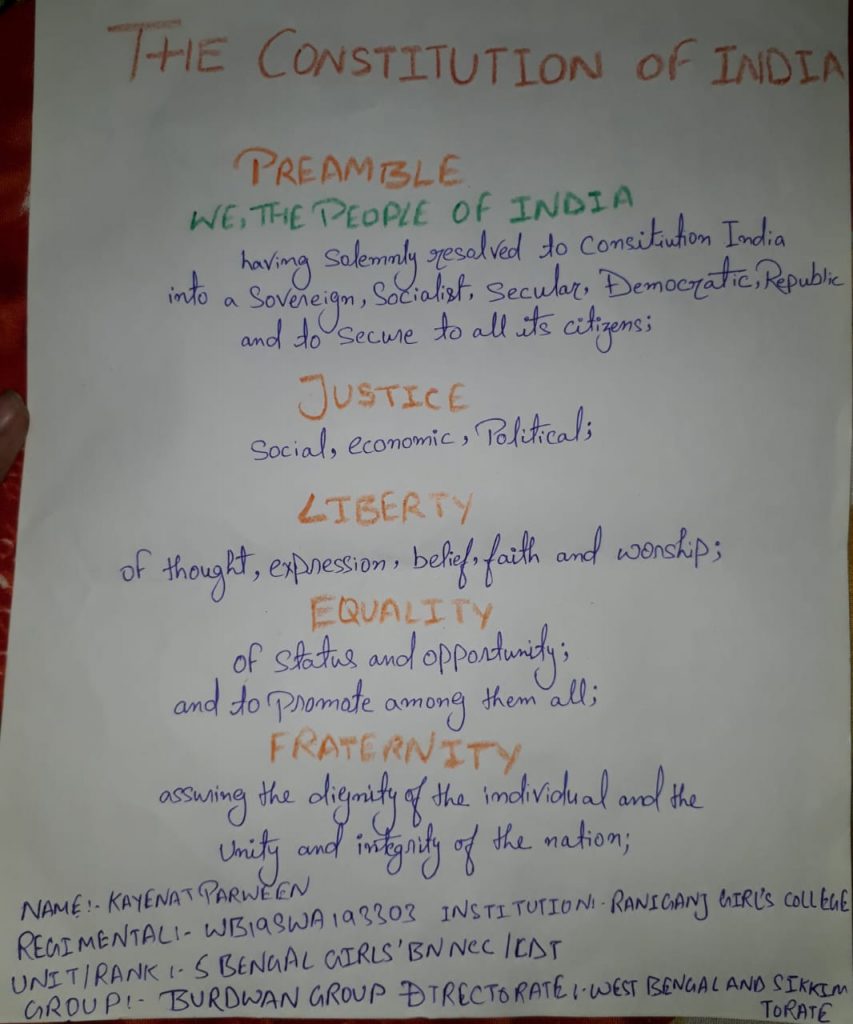 THE CONSTITUTION OF INDIA
PREAMBLE
WE, THE PEOPLE OF INDIA
having solemnly resolved to Consitiution India
into a Sovereign, Socialist, Secular, Democratic, Republic
and to secure to all its citizens;
JUSTICE
Social, economic, Political;
LIBERTY
of thought, expression, belief, faith and worship;
EQUALITY
of status and opportunity;
and to promote among them all;
FRATERNITY
assuring the dignity of the individual and the
Unity and integrity of the nation;
NAME:- KAYENAT PARWEEN
REGIMENTAL:- WB19SWA193303 INSTITUTION:- RANIGANJ GIRL'S COLLEGE
UNIT/RANK:- 5 BENGAL GIRLS' BN NCC/CDT
GROUP:- BURDWAN GROUP DIRECTORATE:- WEST BENGAL AND SIKKIM
TORATE